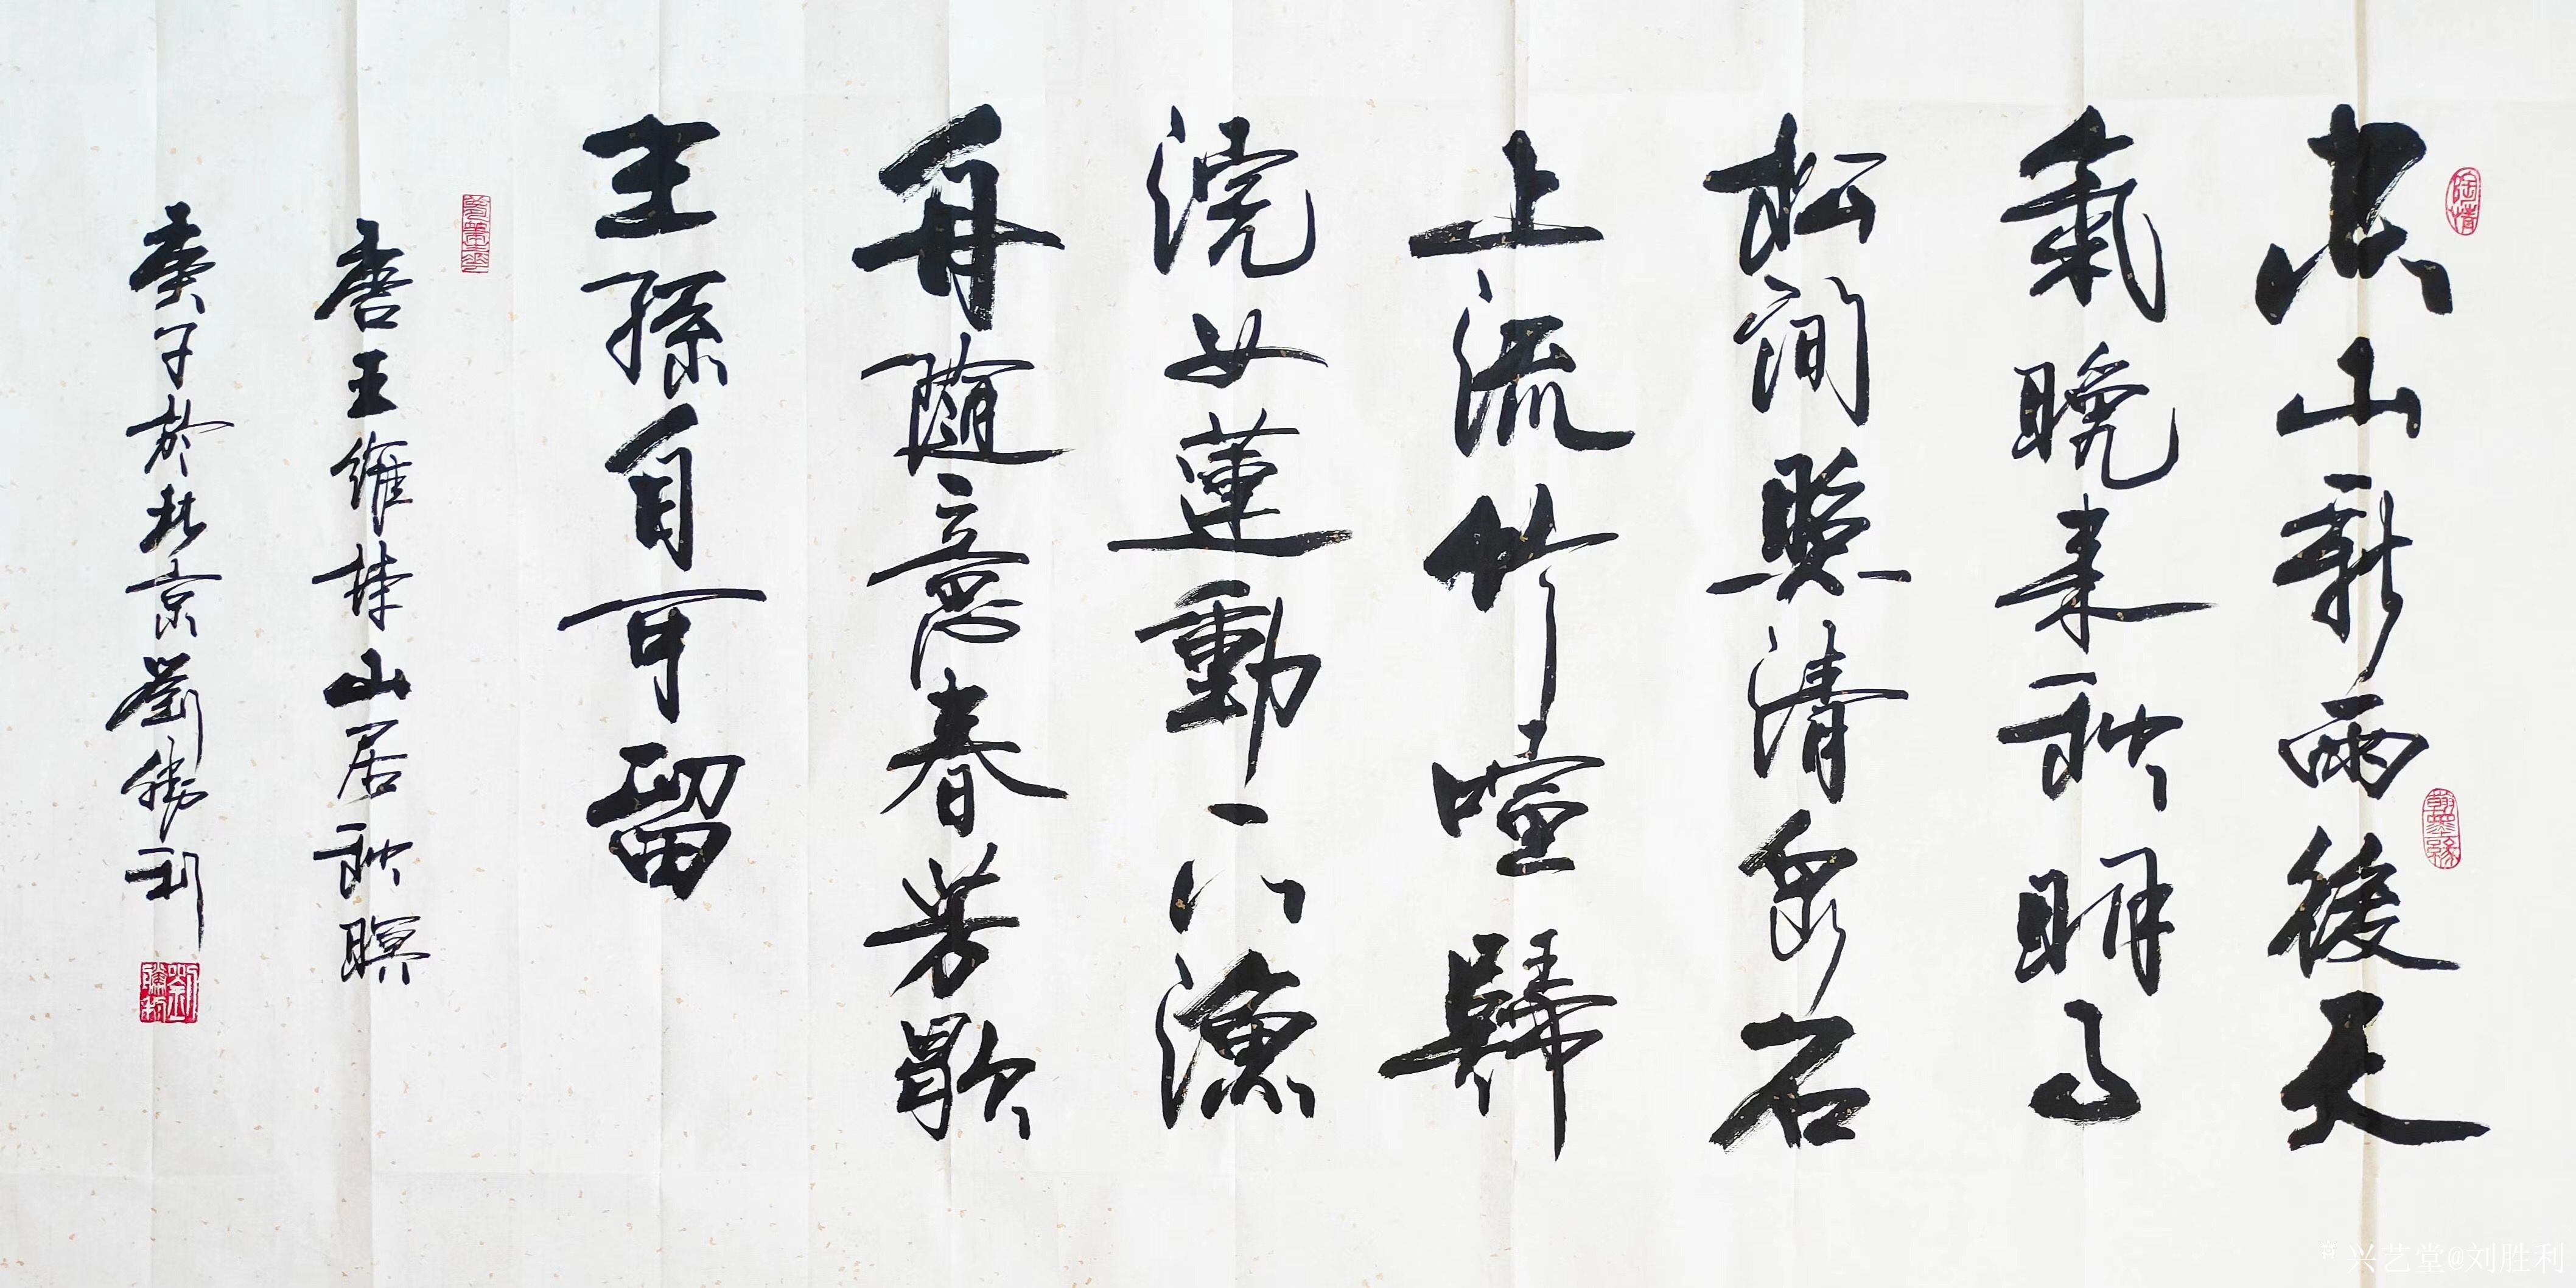 陶情
空山新雨後天
翰墨缘
氣晚来秋明月
松间照清泉石
上流竹喧歸
浣女蓮動下漁
舟随意春芳歇
王孫自可留
唐王維詩山居秋暝
庚子於北京劉勝利
劉勝利
兴艺堂@刘胜利